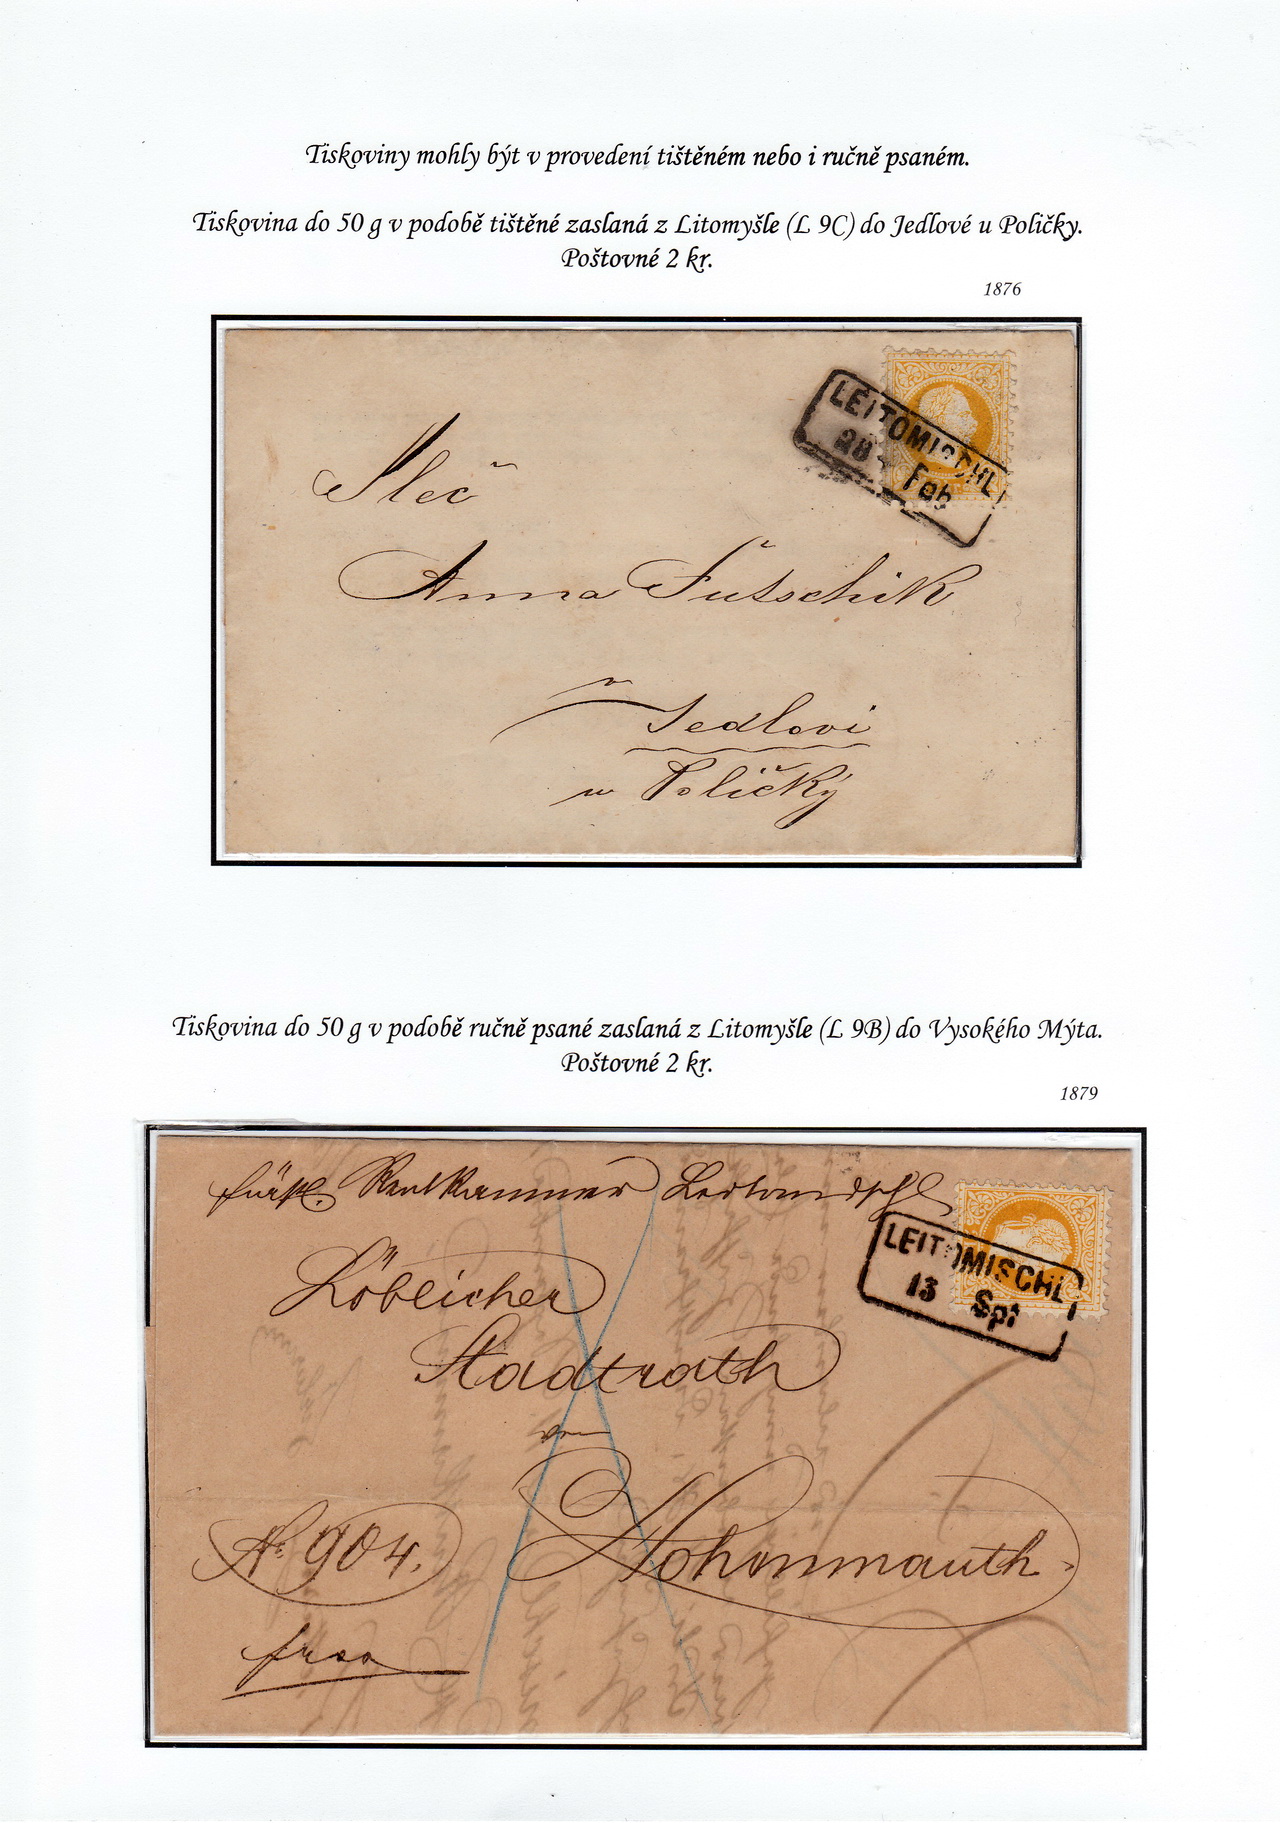 Tiskoviny mohly být v provedení tištěném nebo i ručně psaném.
Tiskovina do 50 g v podobě tištěné zaslaná z Litomyšle (L 9C) do Jedlové u Poličky.
Poštovné 2 kr.
1876
LEITOMISCHL
28 Feb
Sleč
Anna Futschik
v Jedlovi
u Poličky
Tiskovina do 50 g v podobě ručně psané zaslaná z Litomyšle (L 9B) do Vysokého Mýta.
Poštovné 2 kr.
1879
fürstl. Rentkammer Leitomischl
LEITOMISCHL
13 Spt
Löblicher
Stadtrath
Hohenmauth.
No 904.